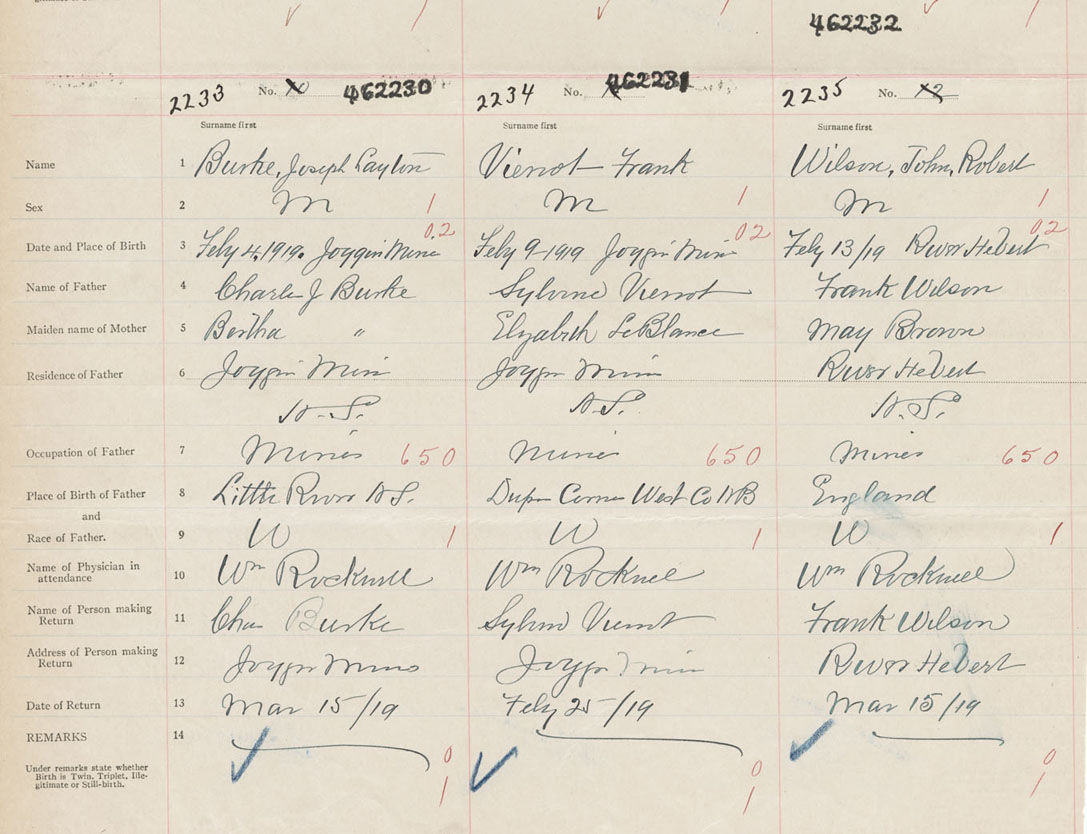 462232
2233 No. 10 462230 2234 No. 462231 2235 No. 12
Surname first Surname first Surname first
Name 1 Burke, Joseph Layton Viernot Frank Wilson, John, Robert
Sex 2 M 1 M 1 M 1
02 02 02
Date and Place of Birth 3 Feby 4, 1919. Joggin Mines Feby 9-1919 Joggin Mines Feby 13/19 River Hebert
Name of Father 4 Charles J Burke Sylvine Viernot Frank Wilson
Maiden name of Mother 5 Bertha " Elyzabeth LeBlance May Brown
Residence of Father 6 Joggin Mines Joggin Mines River Hebert
N.S. N.S. N.S.
Occupation of Father 7 Miner 650 Miner 650 Miner 650
Place of Birth of Father 8 Little River N.S. Corner West Co N.B England
and
Race of Father. 9 W 1 W 1 W 1
Name of Physician in
attendance 10 Wm Rocknell Wm Rocknell Wm Rocknell
Name of Person making
Return 11 Chas Burke Sylvine Viernot Frank Wilson
Address of Person making
Return 12 Joggin Mines Joggin Mines River Hebert
Date of Return 13 Mar 15/19 Feby 25/19 Mar 15/19
REMARKS 14
0 0 0
Under remarks state whether
Birth is Twin, Triplet, Ille-
gitimate or Still-birth.
1 1 1